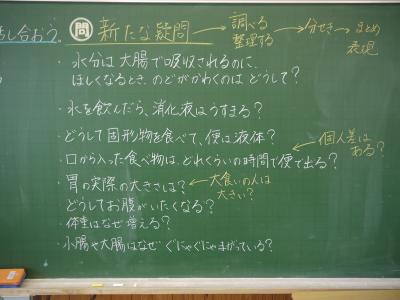 話し合おう。
問 新たな疑問 → 調べる 整理する → 分せき → まとめ 表現
・水分は大腸で吸収されるのに、
ほしくなるとき、のどがかわくのはどうして？
・水を飲んだら、消化液はうすまる？
・どうして固形物を食べて、便は液体？
・口から入った食べ物は、どれくらいの時間で便で出る？
← 個人差はある？
・胃の実際の大きさは？ ← 大食いの人は大きい？
どうしてお腹がいたくなる？
・体重はなぜ増える？
・小腸や大腸はなぜぐにゃぐにゃまがっている？